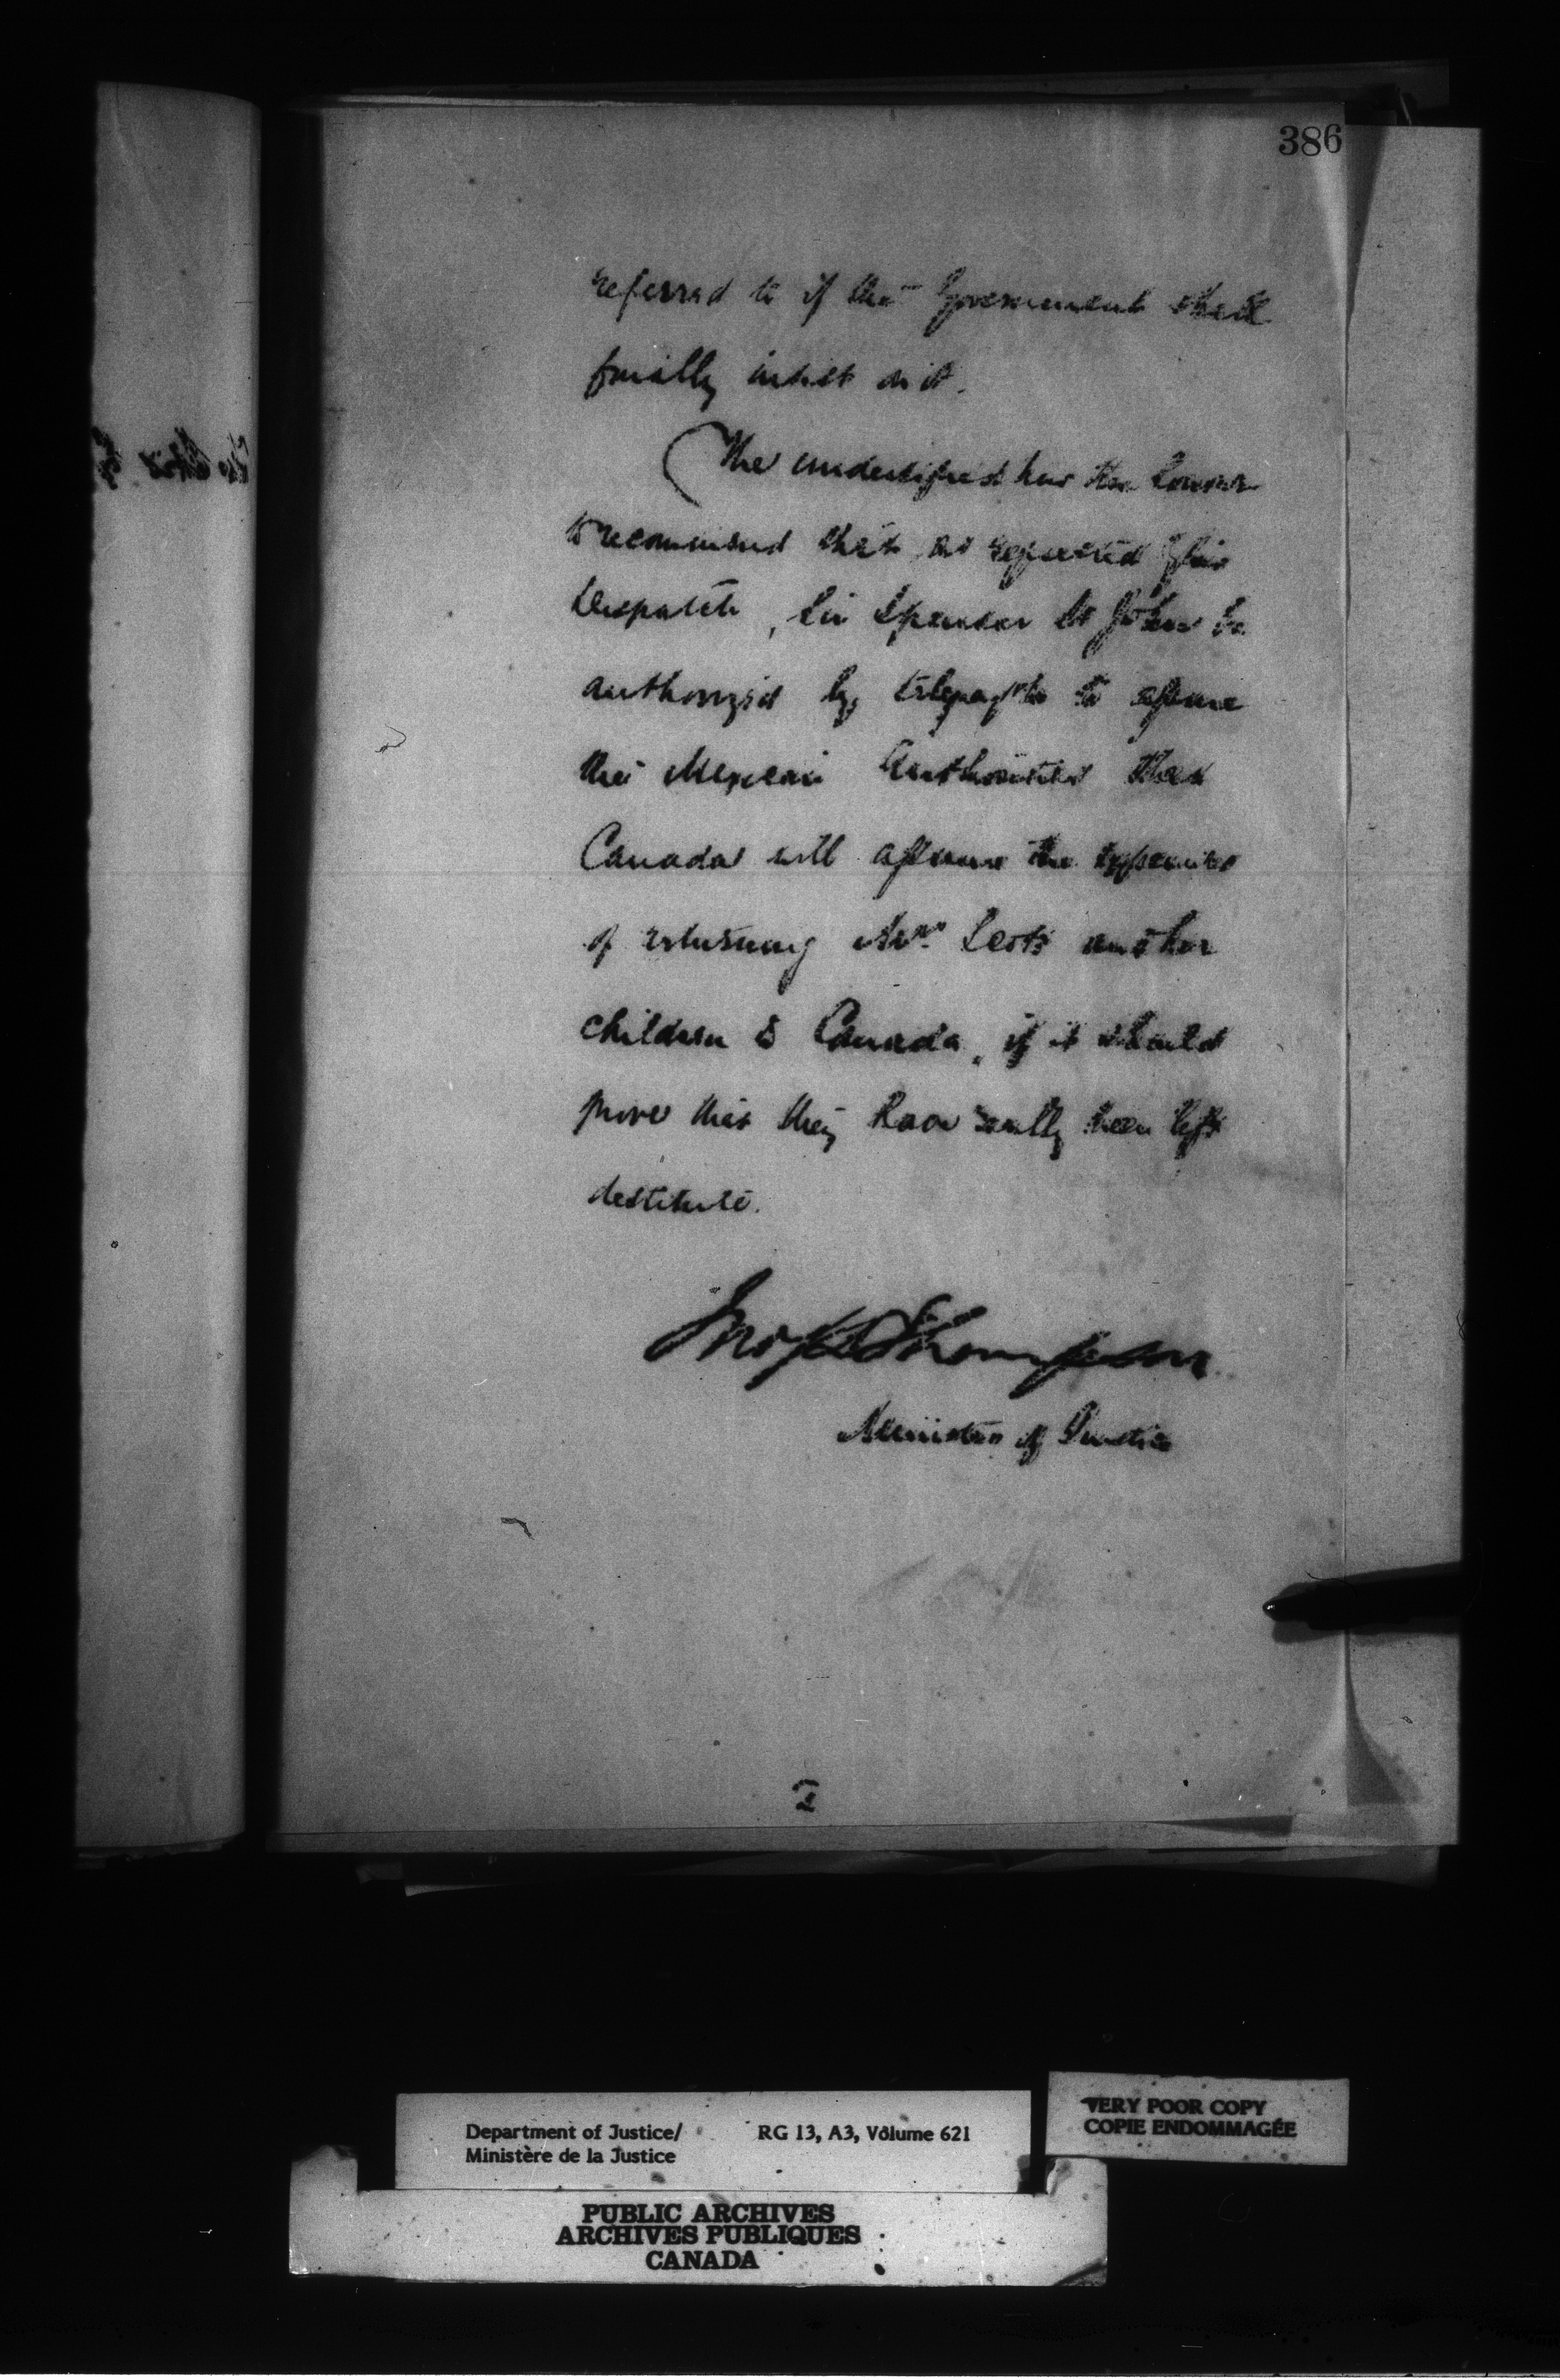 386
referred to if that Government shall
finally insist on it.
The undersigned has the honour
to recommend that as requested
Despatch, Sir Spenser St John be
authorized by telegraph to assure
the Mexican Authorities that
Canada will assume the expenses
of returning Mrs. and her
children to Canada, if it should
prove that they have really been left
destitute.
Jno S D Thompson
Minister of Justice
2
Department of Justice/ RG 13, A3, Volume 621
Ministère de la Justice
VERY POOR COPY
COPIE ENDOMMAGÉE
PUBLIC ARCHIVES
ARCHIVES PUBLIQUES
CANADA